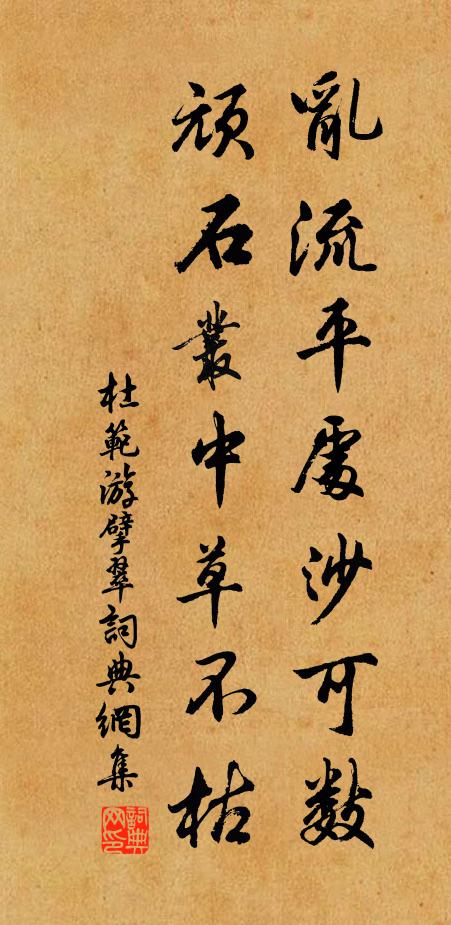 亂流平處沙可數
頑石叢中草不枯
杜範游擘翠詞典網集
詞典網印